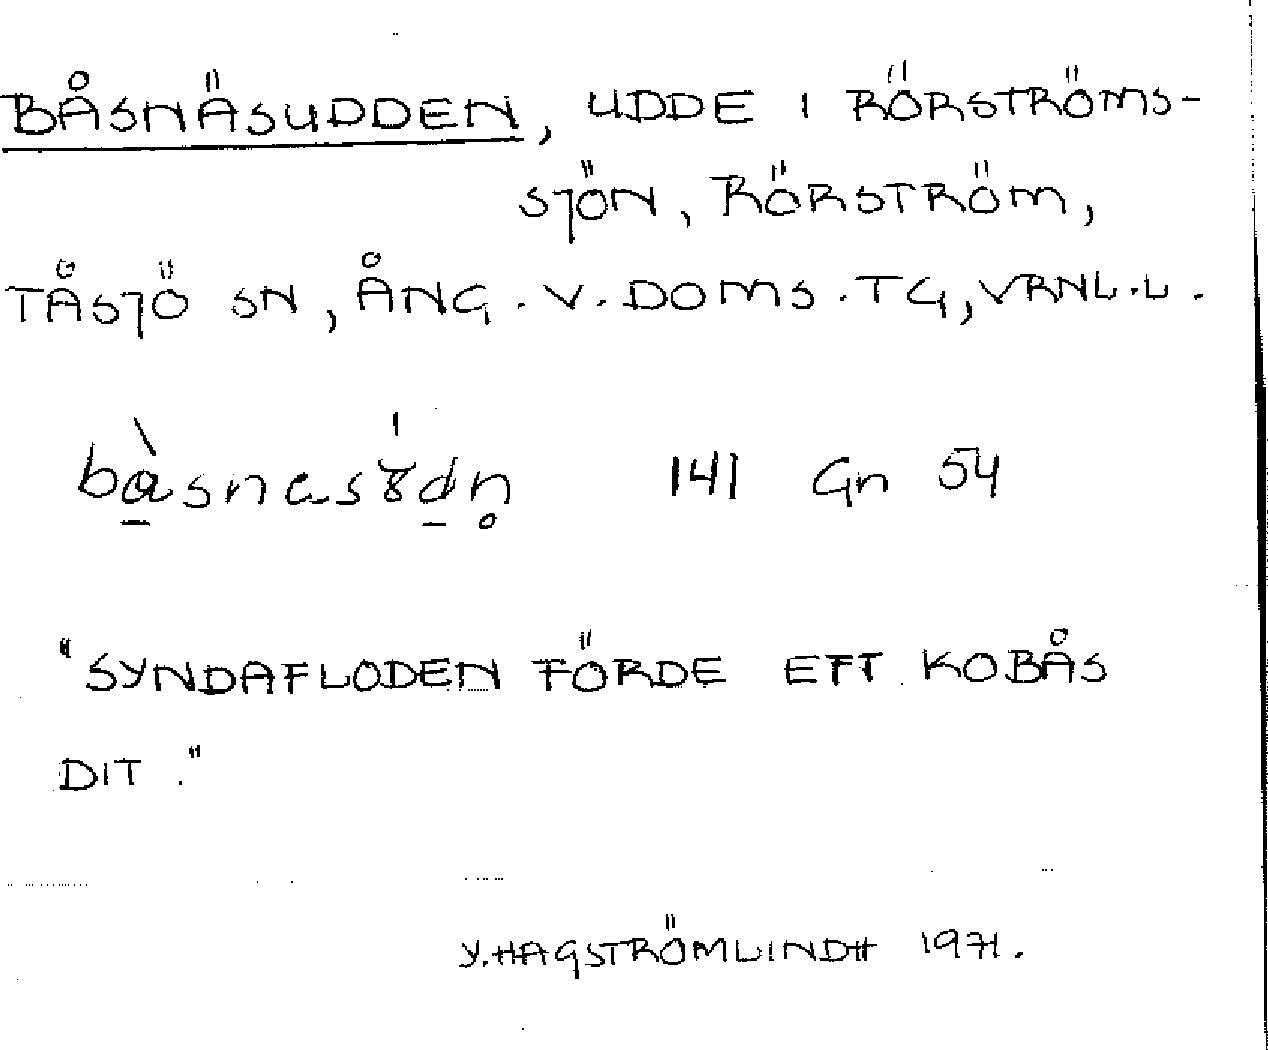 BÅSNÄSUDDEN, UDDE I RÖRSTRÖMS-
SJÖN, RÖRSTRÖM,
TÅSJÖ SN, ÅNG. V. DOMS. TG, VRNL. L.
141 Gn 54
"SYNDAFLODEN FÖRDE ETT KOBÅS
DIT."
Y. HAGSTRÖMLINDH 1971.